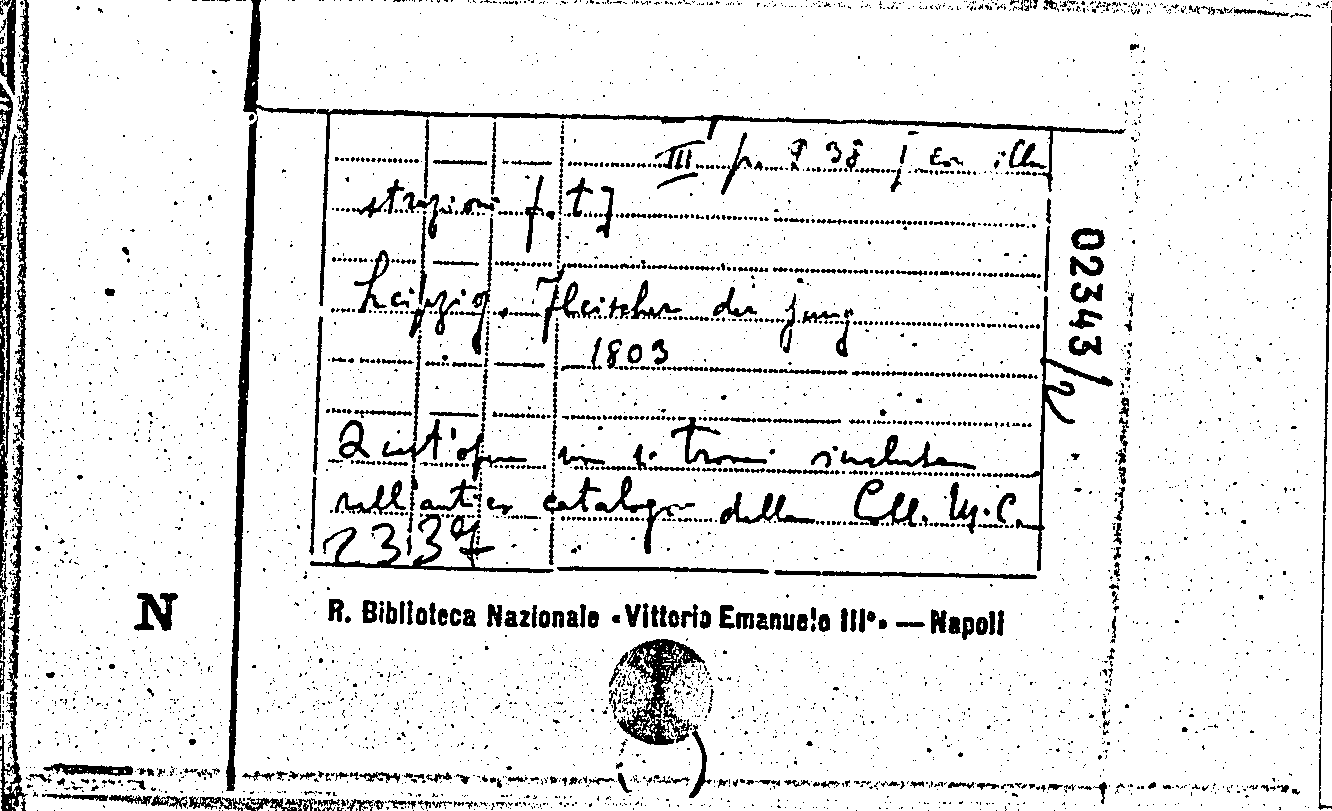 III p. 238 [con illu
strazioni f. t.]
Leipzig, Fleischer der jung
1803
Quest'opera non si trova inclusa
nell'antico catalogo della Coll. M.C.
R. Biblioteca Nazionale «Vittorio Emanuele III°» — Napoli
02343/2
N